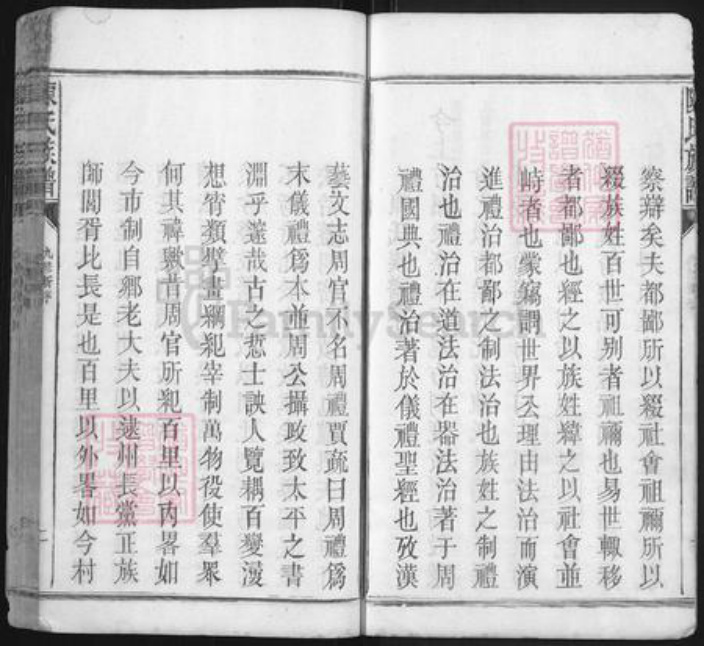 察辯矣夫都鄙所以綴社會祖禰所以
綴族姓百世可别者祖禰也易世輙移
者都鄙也經之以族姓緯之以社會並
峙者也蒙竊謂世界公理由法治而演
進禮治都鄙之制法治也族姓之制禮
治也禮治在道法治在器法治著于周
禮國典也禮治著於儀禮聖經也攷漢
藝文志周官不名周禮賈疏曰周禮爲
末儀禮爲本並周公攝政致太平之書
淵乎遂哉古之悊士諛人覽耦百變漫
想宵類擘畫綱紀宰制萬物役使羣衆
何其禕歟昔周官所紀百里以内畧如
今市制自鄉老大夫以逮州長黨正族
師閭胥比長是也百里以外畧如今村
陳氏族譜
陳氏族譜
FamilySearch